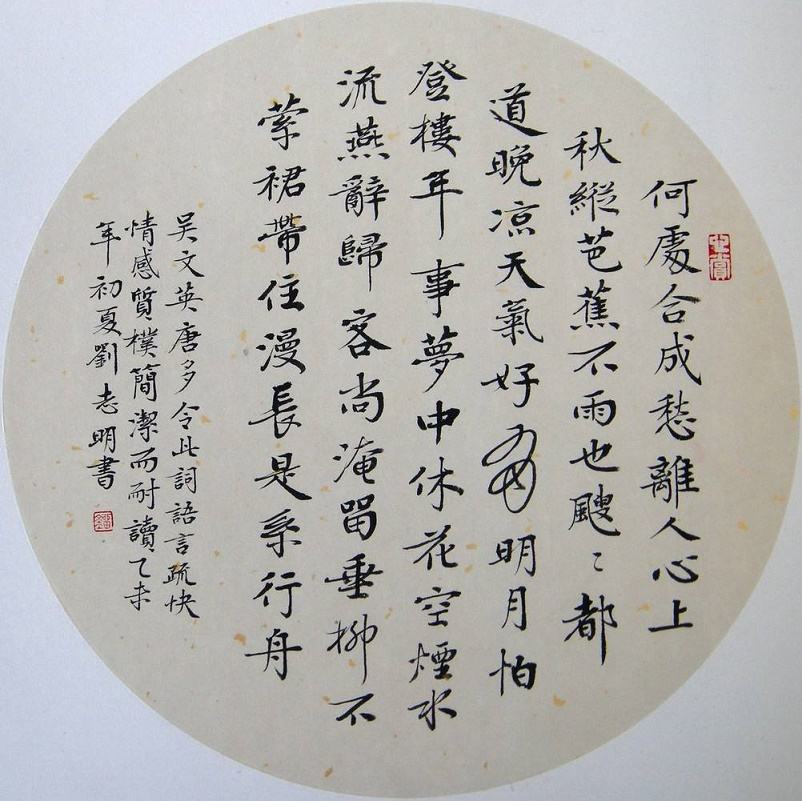 何處合成愁離人心上
秋縱芭蕉不雨也颼〻都
道晚凉天氣好有明月怕
登樓年事夢中休花空煙水
流燕辭歸客尚淹留垂柳不
縈裙帶住漫長是系行舟
吴文英唐多令此詞語言疏快
情感質樸簡潔而耐讀乙未
年初夏劉志明書